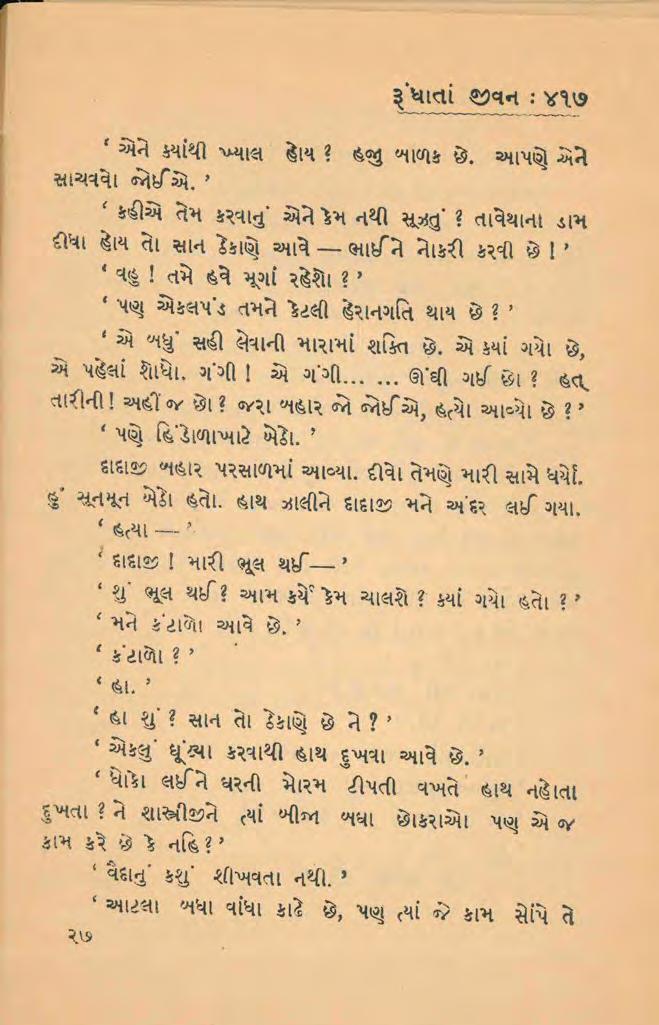 રૂંધાતાં જીવન : ૪૧૭
‘ એને ક્યાંથી ખ્યાલ હોય ? હજી બાળક છે. આપણે એને
સાચવવો જોઈએ. ’
‘ કહીએ તેમ કરવાનું એને કેમ નથી સૂઝતું ? તાવેથાના ડામ
દીધા હોય તો સાન ઠેકાણે આવે — ભાઈને નોકરી કરવી છે ! ’
‘ વહુ ! તમે હવે મૂગાં રહેશો ? ’
‘ પણ એકલપંડ તમને કેટલી હેરાનગતિ થાય છે ? ’
‘ એ બધું સહી લેવાની મારામાં શક્તિ છે. એ ક્યાં ગયો છે,
એ પહેલાં શોધો. ગંગી ! એ ગંગી... ... ઊંઘી ગઈ છો ? હત્
તારીની ! અહીં જ છો ? જરા બહાર જો જોઈએ, હત્યો આવ્યો છે ? ’
‘ પણે હિંડોળાખાટે બેઠો. ’
દાદાજી બહાર પરસાળમાં આવ્યા. દીવો તેમણે મારી સામે ધર્યો.
હું સૂનમૂન બેઠો હતો. હાથ ઝાલીને દાદાજી મને અંદર લઈ ગયા.
‘ હત્યા — ’
‘ દાદાજી ! મારી ભૂલ થઈ— ’
‘ શું ભૂલ થઈ ? આમ કર્યે કેમ ચાલશે ? ક્યાં ગયો હતો ? ’
‘ મને કંટાળો આવે છે. ’
‘ કંટાળો ? ’
‘ હા. ’
‘ હા શું ? સાન તો ઠેકાણે છે ને ? ’
‘ એકલું ઘૂંટ્યા કરવાથી હાથ દુખવા આવે છે. ’
‘ ધોકો લઈને ઘરની મોરમ ટીપતી વખતે હાથ નહોતા
દુખતા ? ને શાસ્ત્રીજીને ત્યાં બીજા બધા છોકરાઓ પણ એ જ
કામ કરે છે કે નહિ ? ’
‘ વૈદાનું કશું શીખવતા નથી. ’
‘ આટલા બધા વાંધા કાઢે છે, પણ ત્યાં જે કામ સોંપે તે
૨૭